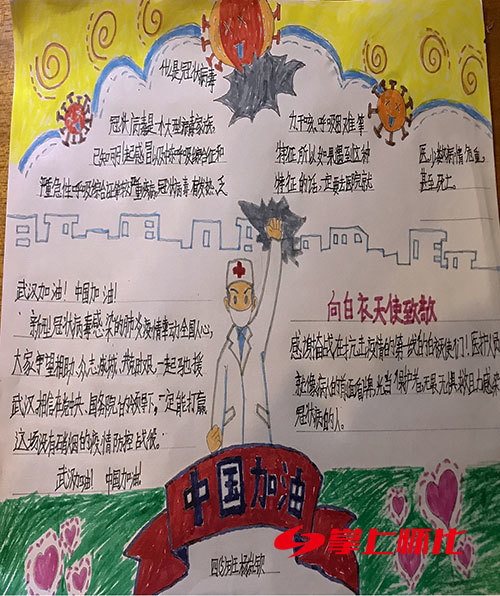 什么是冠状病毒
冠状病毒是一个大型病毒家族,
已知可引起感冒以及中东呼吸综合征和
严重急性呼吸综合征等较严重疾病。冠状病毒有发热、乏
力、干咳、呼吸困难等
特征,所以如果遇到这种
特征的话,一定要去医院就
医,以免病情危重,
甚至死亡。
武汉加油!中国加油!
新型冠状病毒感染的肺炎疫情牵动全国人心,
大家守望相助、众志成城、
武汉,相信在党中央、国务院的领导下,一定能打赢
这场没有硝烟的疫情防控战役。
武汉加油!中国加油!
向白衣天使致敬
感谢奋战在抗击疫情的第一线的白衣天使们!医护人员
就像病人的
冠状病毒的人。
中国加油
掌上怀化